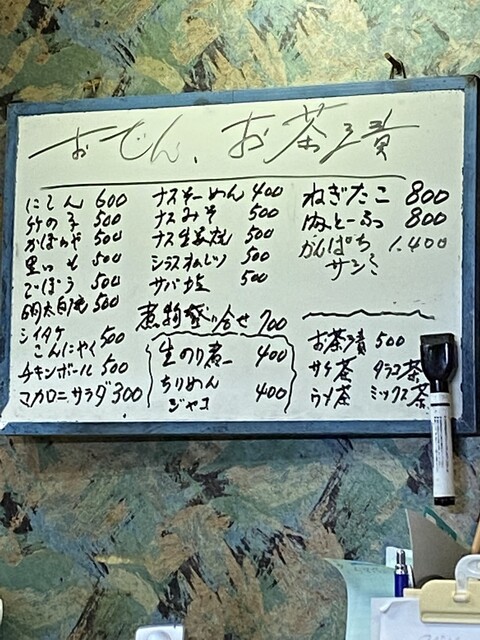 おでん、お茶漬
にしん 600
竹の子 500
かぼちゃ 500
里いも 500
ごぼう 500
明太白滝 500
シイタケ
こんにゃく 500
チキンボール 500
マカロニサラダ 300
ナスそーめん 400
ナスみそ 500
ナス生姜焼 500
シラスオムレツ 500
サバ塩 500
煮物盛り合せ 700
生のり煮 400
ちりめん
ジャコ 400
ねぎたこ 800
肉とーふ 800
かんぱち 1,400
サシミ
お茶漬 500
サケ茶 タラコ茶
ウメ茶 ミックス茶